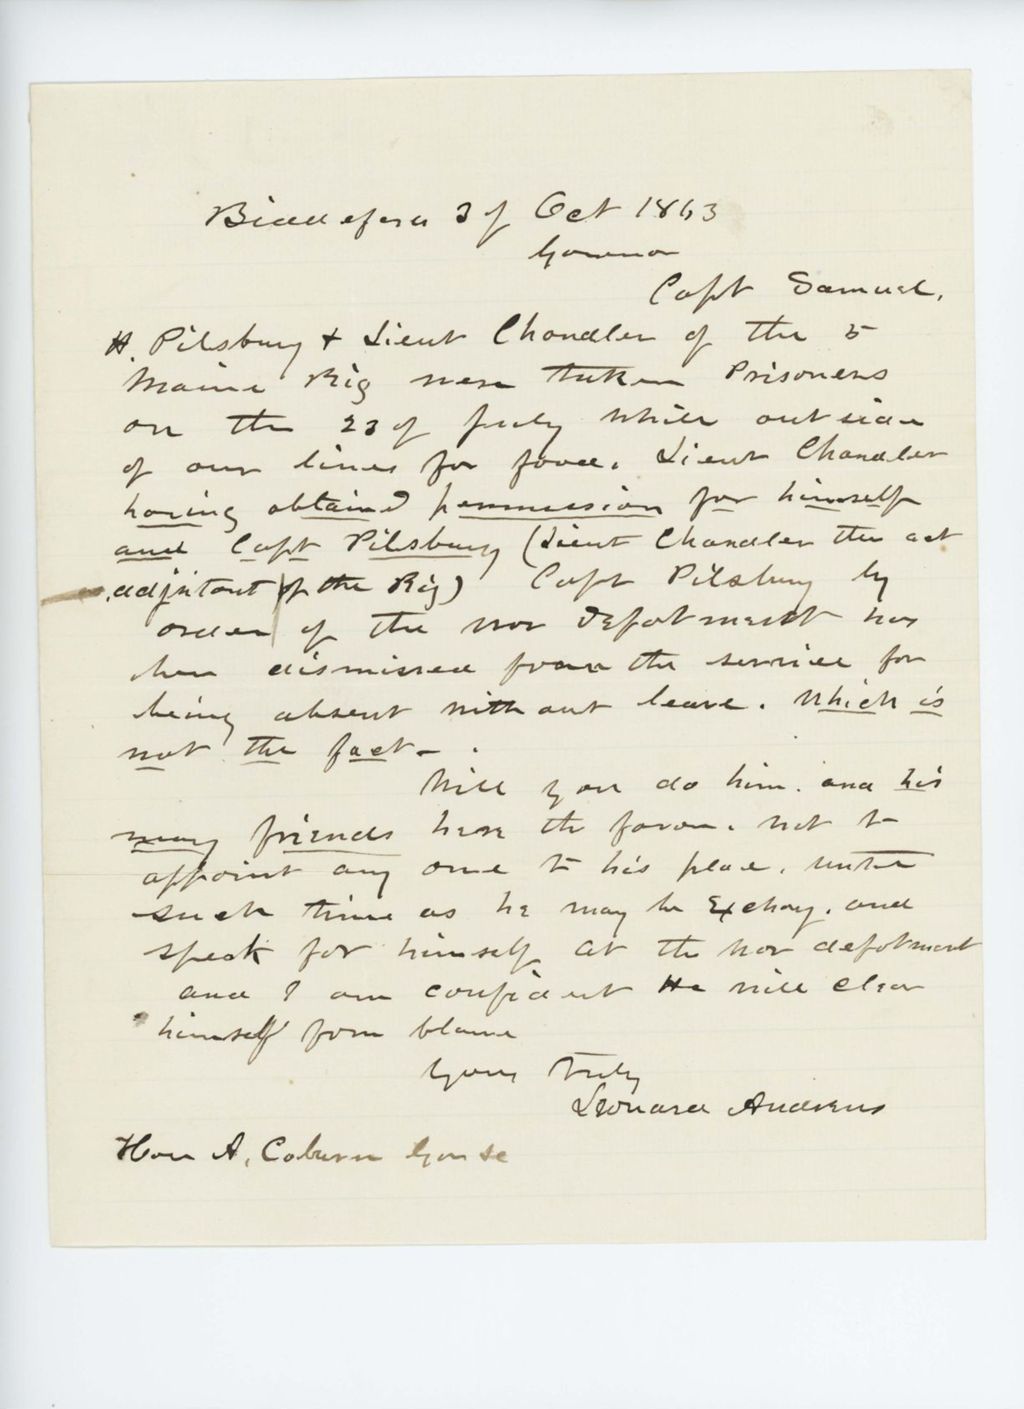 Biddeford 3 of Oct 1863
Governor
Capt Samuel.
H. Pilsbury + Lieut Chandler of the 5
Maine Rig were taken Prisoners
on the 23 of July while outside
of our lines for food. Lieut Chandler
having obtained permission for himself
and Capt Pilsbury (Lieut Chandler the act
adjutant of the Rig) Capt Pilsbury by
order of the war Depotment has
been dismissed from the service for
being absent without leave. which is
not the fact -.
Will you do him. and his
many friends here the favor. not to
appoint any one to his place. untill
such time as he may be Exchang. and
speak for himself at the war depotment
and I am confident He will clear
himself from blame
Yours Truly
Leonard Andrews
Hon A. Coburn Gov &c